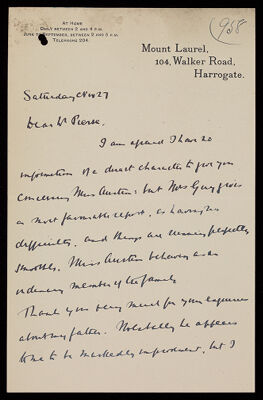 AT HOME
DAILY BETWEEN 2 AND 4 P.M.
JUNE TO SEPTEMBER, BETWEEN 2 AND 3 P.M.
TELEPHONE 204.
958
Mount Laurel,
104, Walker Road,
Harrogate.
Saturday Nov 27
Dear Dr Pierce,
I am afraid I have no
information of a direct character to give you
concerning Miss Austin: but Mrs Guy gives
a most favourable report, as having no
difficulties, and things are running perfectly
smoothly. Miss Austin behaving as an
ordinary member of the family
Thank you very much for your enquiries
about my father. Notably he appears
to me to be markedly improved, but I